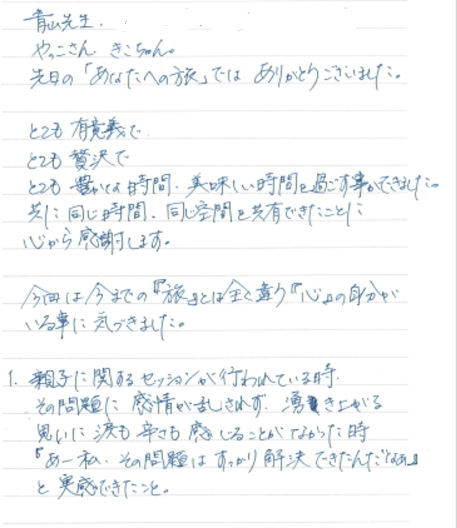 青山先生、
やっこさん、きこちゃん。
先日の「あなたへの旅」では ありがとうございました。
とても 有意義で
とても 贅沢で
とても 豊かな時間、美味しい時間を過ごす事ができました。
共に 同じ時間、同じ空間を共有できたことに
心から感謝します。
今回は今までの『旅』とは全く違う『心』の自分が
いる事に 気づきました。
1. 親子に関するセッションが行われている時、
その問題に 感情が乱されず、湧き上がる
思いに涙も辛さも感じることがなかった時
『あー私、その問題は すっかり解決できたんだなぁ』
と 実感できたこと。